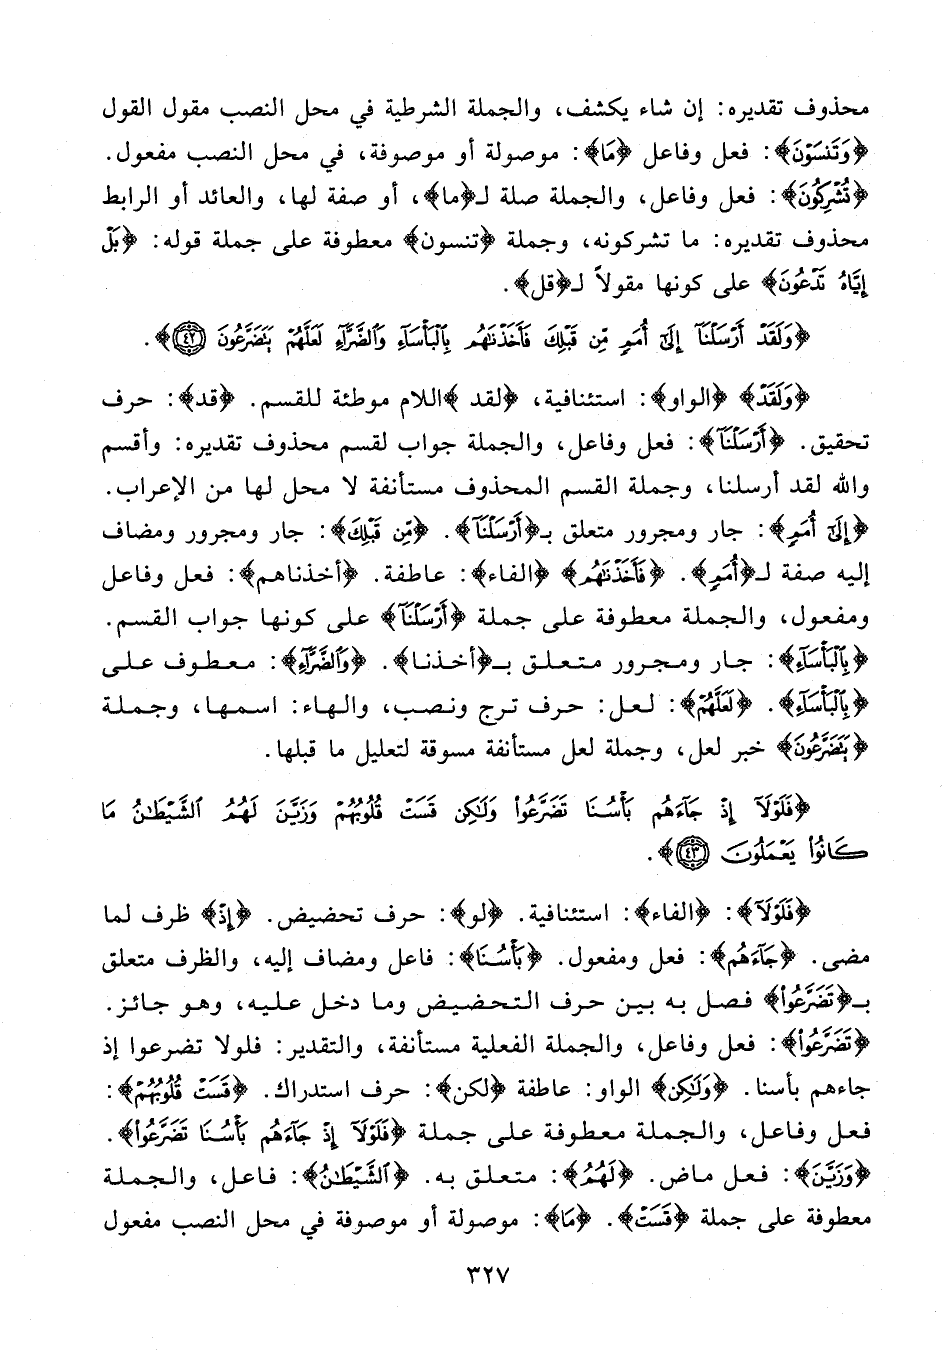 محذوف تقديره: إن شاء يكشف، والجملة الشرطية في محل النصب مقول القول
﴿وَتَنسَوْنَ﴾: فعل وفاعل ﴿مَا﴾: موصولة أو موصوفة، في محل النصب مفعول.
﴿تُشْرِكُونَ﴾: فعل وفاعل، والجملة صلة لـ﴿ما﴾، أو صفة لها، والعائد أو الرابط
محذوف تقديره: ما تشركونه، وجملة ﴿تنسون﴾ معطوفة على جملة قوله: ﴿بَلْ
إِيَّاهُ تَدْعُونَ﴾ على كونها مقولاً لـ﴿قل﴾.
﴿وَلَقَدْ أَرْسَلْنَآ إِلَىٰٓ أُمَمٍ مِّن قَبْلِكَ فَأَخَذْنَـٰهُم بِٱلْبَأْسَآءِ وَٱلضَّرَّآءِ لَعَلَّهُمْ يَتَضَرَّعُونَ ﴿٤٢﴾﴾.
﴿وَلَقَدْ﴾ ﴿الواو﴾: استئنافية، ﴿لقد ﴾اللام موطئة للقسم. ﴿قد﴾: حرف
تحقيق. ﴿أَرْسَلْنَآ﴾: فعل وفاعل، والجملة جواب لقسم محذوف تقديره: وأقسم
والله لقد أرسلنا، وجملة القسم المحذوف مستأنفة لا محل لها من الإعراب.
﴿إِلَىٰٓ أُمَمٍ﴾: جار ومجرور متعلق بـ﴿أَرْسَلْنَآ﴾. ﴿مِّن قَبْلِكَ﴾: جار ومجرور ومضاف
إليه صفة لـ﴿أُمَمٍ﴾. ﴿فَأَخَذْنَـٰهُم﴾ ﴿الفاء﴾: عاطفة. ﴿أخذناهم﴾: فعل وفاعل
ومفعول، والجملة معطوفة على جملة ﴿أَرْسَلْنَآ﴾ على كونها جواب القسم.
﴿بِٱلْبَأْسَآءِ﴾: جار ومجرور متعلق بـ﴿أخذنا﴾. ﴿وَٱلضَّرَّآءِ﴾: معطوف على
﴿بِٱلْبَأْسَآءِ﴾. ﴿لَعَلَّهُمْ﴾: لعل: حرف ترج ونصب، والهاء: اسمها، وجملة
﴿يَتَضَرَّعُونَ﴾ خبر لعل، وجملة لعل مستأنفة مسوقة لتعليل ما قبلها.
﴿فَلَوْلَآ إِذْ جَآءَهُم بَأْسُنَا تَضَرَّعُوا۟ وَلَـٰكِن قَسَتْ قُلُوبُهُمْ وَزَيَّنَ لَهُمُ ٱلشَّيْطَـٰنُ مَا
كَانُوا۟ يَعْمَلُونَ ﴿٤٣﴾﴾.
﴿فَلَوْلَآ﴾: ﴿الفاء﴾: استئنافية. ﴿لو﴾: حرف تحضيض. ﴿إِذْ﴾ ظرف لما
مضى. ﴿جَآءَهُم﴾: فعل ومفعول. ﴿بَأْسُنَا﴾: فاعل ومضاف إليه، والظرف متعلق
بـ﴿تَضَرَّعُوا۟﴾ فصل به بين حرف التحضيض وما دخل عليه، وهو جائز.
﴿تَضَرَّعُوا۟﴾: فعل وفاعل، والجملة الفعلية مستأنفة، والتقدير: فلولا تضرعوا إذ
جاءهم بأسنا. ﴿وَلَـٰكِن﴾ الواو: عاطفة ﴿لكن﴾: حرف استدراك. ﴿قَسَتْ قُلُوبُهُمْ﴾:
فعل وفاعل، والجملة معطوفة على جملة ﴿فَلَوْلَآ إِذْ جَآءَهُم بَأْسُنَا تَضَرَّعُوا۟﴾.
﴿وَزَيَّنَ﴾: فعل ماض. ﴿لَهُمُ﴾: متعلق به. ﴿ٱلشَّيْطَـٰنُ﴾: فاعل، والجملة
معطوفة على جملة ﴿قَسَتْ﴾. ﴿مَا﴾: موصولة أو موصوفة في محل النصب مفعول
٣٢٧